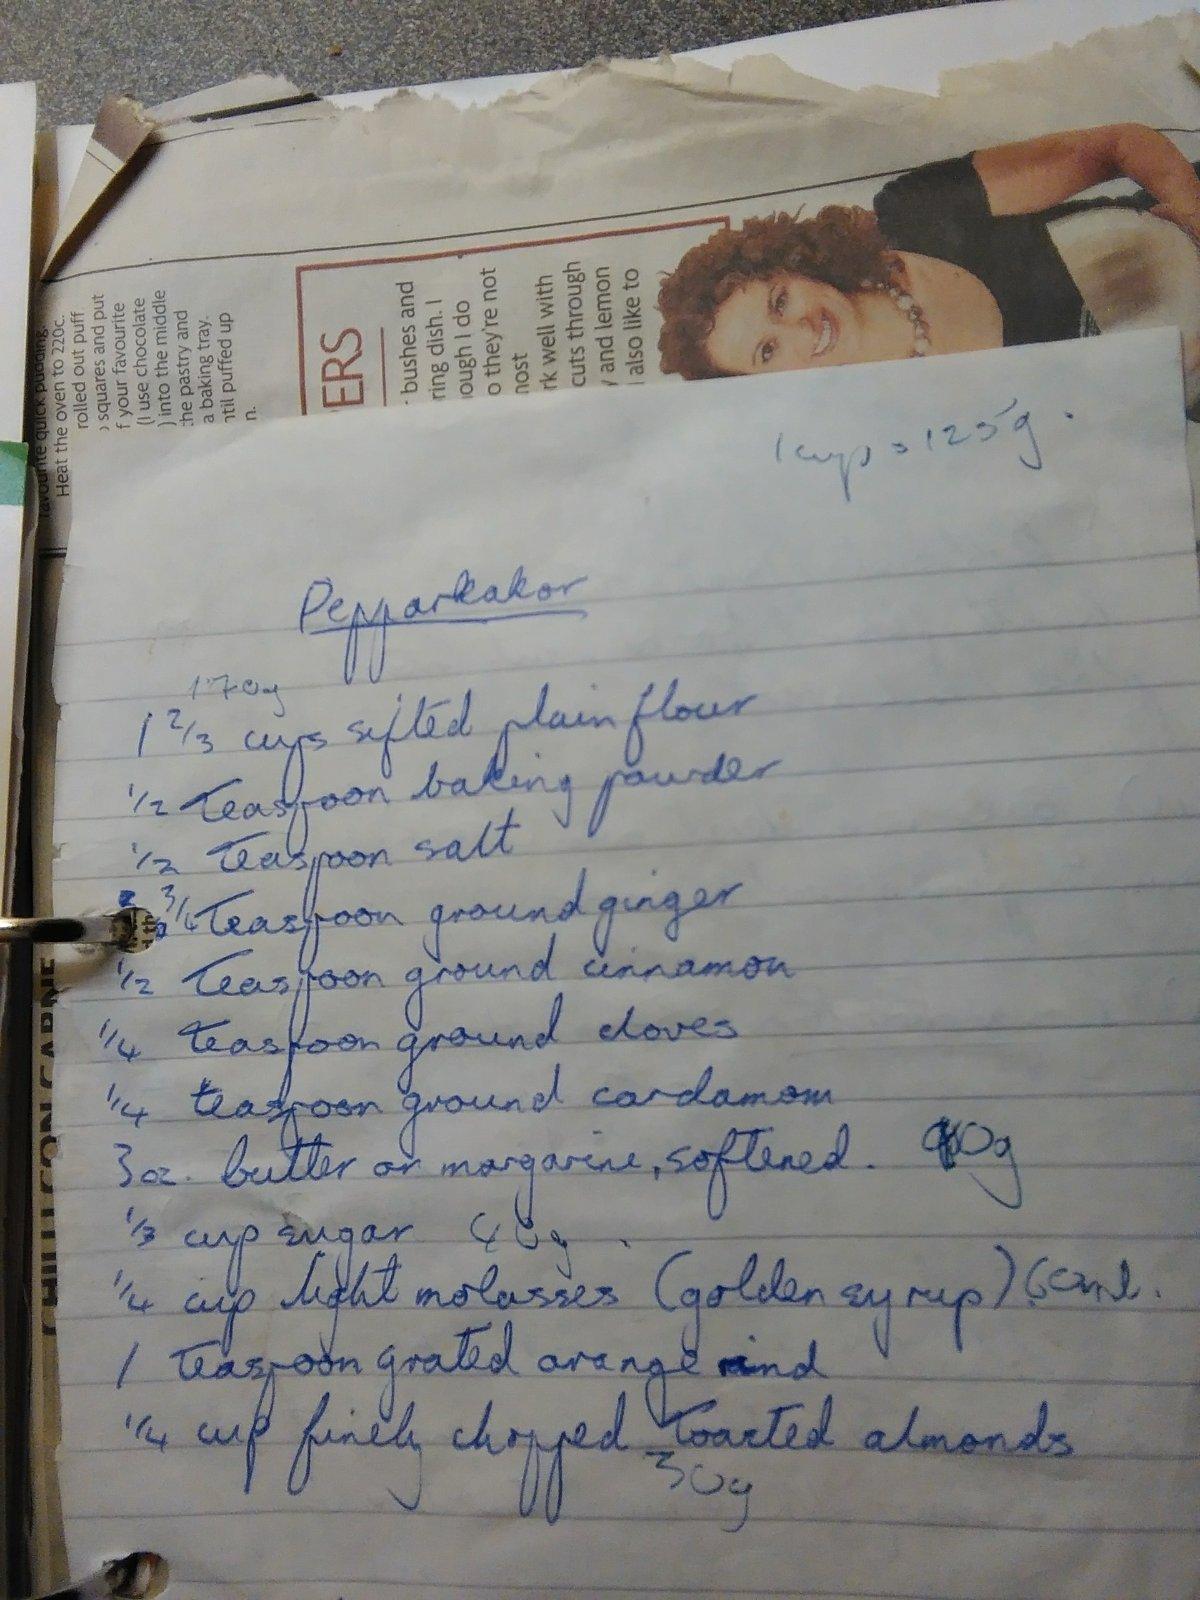 favourite quick pudding.
Heat the oven to 220c.
rolled out puff
squares and put
f your favourite
(I use chocolate
) into the middle
the pastry and
a baking tray.
ntil puffed up
n.
ERS
bushes and
ring dish. I
ough I do
o they're not
most
rk well with
cuts through
y and lemon
I also like to
1 cup = 125g.
Pepparkakor
170g
1 2/3 cups sifted plain flour
1/2 teaspoon baking powder
1/2 teaspoon salt
3/4 teaspoon ground ginger
1/2 teaspoon ground cinnamon
1/4 teaspoon ground cloves
1/4 teaspoon ground cardamom
3oz. butter or margarine, softened. 90g
1/3 cup sugar 40g.
1/4 cup light molasses (golden syrup) 60ml.
1 teaspoon grated orange rind
1/4 cup finely chopped toasted almonds
30g
CHILLI CON CARNE